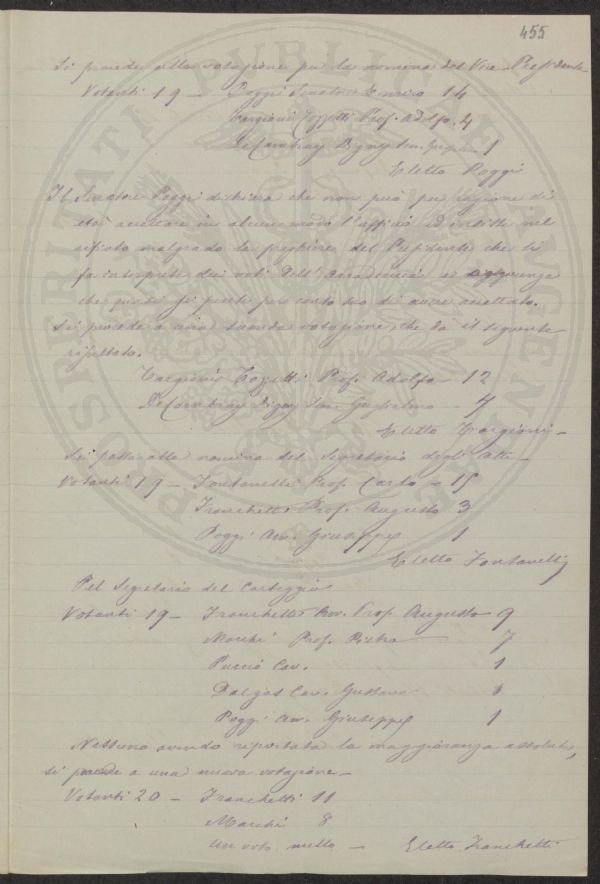 455
Si procede alla votazione per la nomina del Vice-Presidente
Votanti 19 — Poggi Senatore Enrico 14
Targioni Tozzetti Prof. Adolfo 4
De Cambray Digny Sen. Guglielmo 1
Eletto Poggi
Il Senatore Poggi dichiara che non può per ragione di
età accettare in alcun modo l'ufficio ed insiste nel
rifiuto malgrado le preghiere del Presidente che si
fa interprete dei voti dell'Accademia ed
che quasi si penti per conto suo di avere accettato.
Si procede a una seconda votazione, che dà il seguente
risultato.
Targioni Tozzetti Prof. Adolfo — 12
De Cambray Digny Sen. Guglielmo —
Eletto Targioni —
Si passa alla nomina del Segretario degli Atti —
Votanti 19 — Fontanelli Prof. Carlo — 15
Franchetti Prof. Augusto 3
Poggi Avv. Giuseppe 1
Eletto Fontanelli
Pel Segretario del Carteggio
Votanti 19 — Franchetti Avv. Prof. Augusto 9
Marchi Prof. Pietro 7
Puccio Cav. 1
Dalgas Cav. Gustavo 1
Poggi Avv. Giuseppe 1
Nessuno avendo riportata la maggioranza assoluta,
si procede a una nuova votazione —
Votanti 20 — Franchetti 11
Marchi 8
Un voto nullo — Eletto Franchetti
PROSPERITATI PUBLICAE AUGENDAE